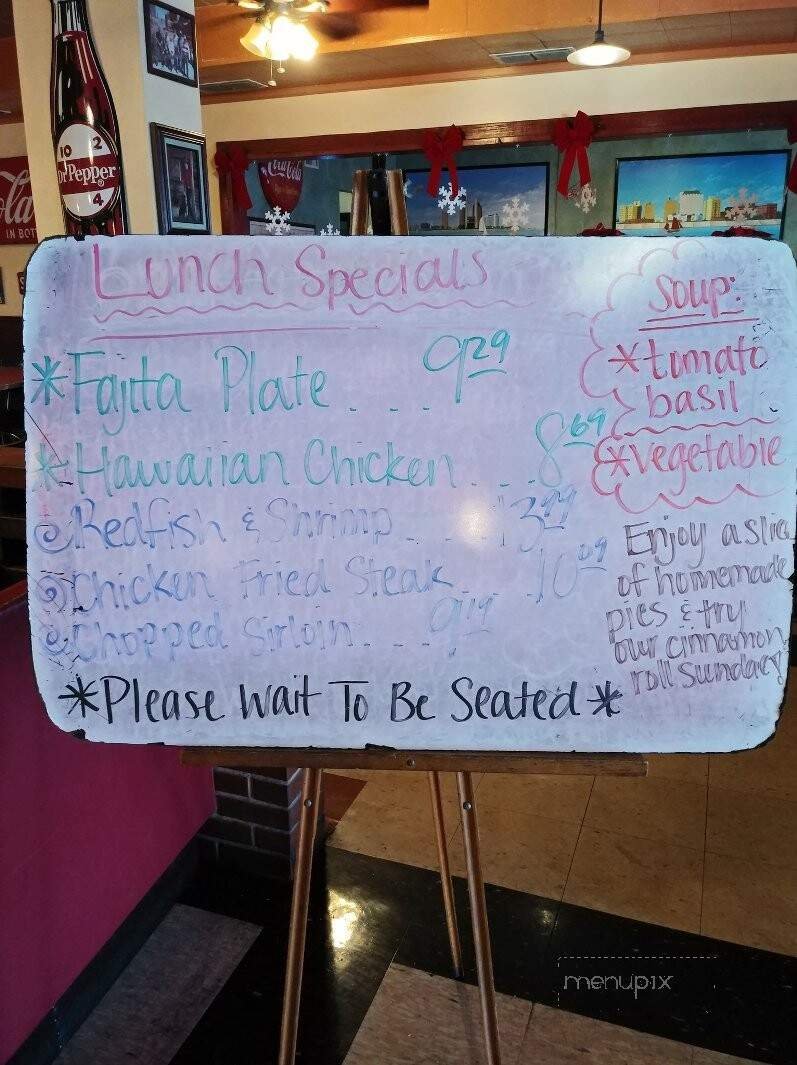 10 2
Dr Pepper
4
Coca-Cola
la
IN BOT
Lunch Specials
*Fajita Plate . . . 9.29
*Hawaiian Chicken . . . 8.69
Redfish & Shrimp . . . 13.99
Chicken Fried Steak . . . 10.09
Chopped Sirloin . . . 9.19
*Please Wait To Be Seated*
Soup:
*tomato
basil
*vegetable
Enjoy a slice
of homemade
pies & try
our cinnamon
roll Sundaes
menupix